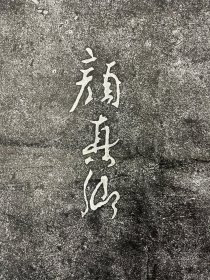 顏真卿